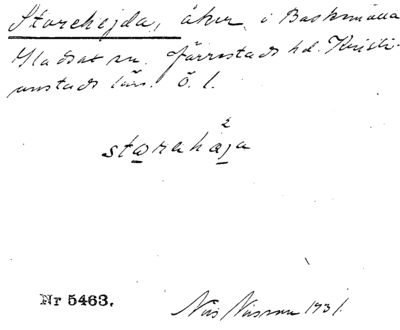 Storehejda, åker, i Baskemölla
Gladsax sn. Järrestads hd. Kristi-
anstads län. Ö. l.
2
storahäja
Nr 5463.
Nils Nilsson 1931.